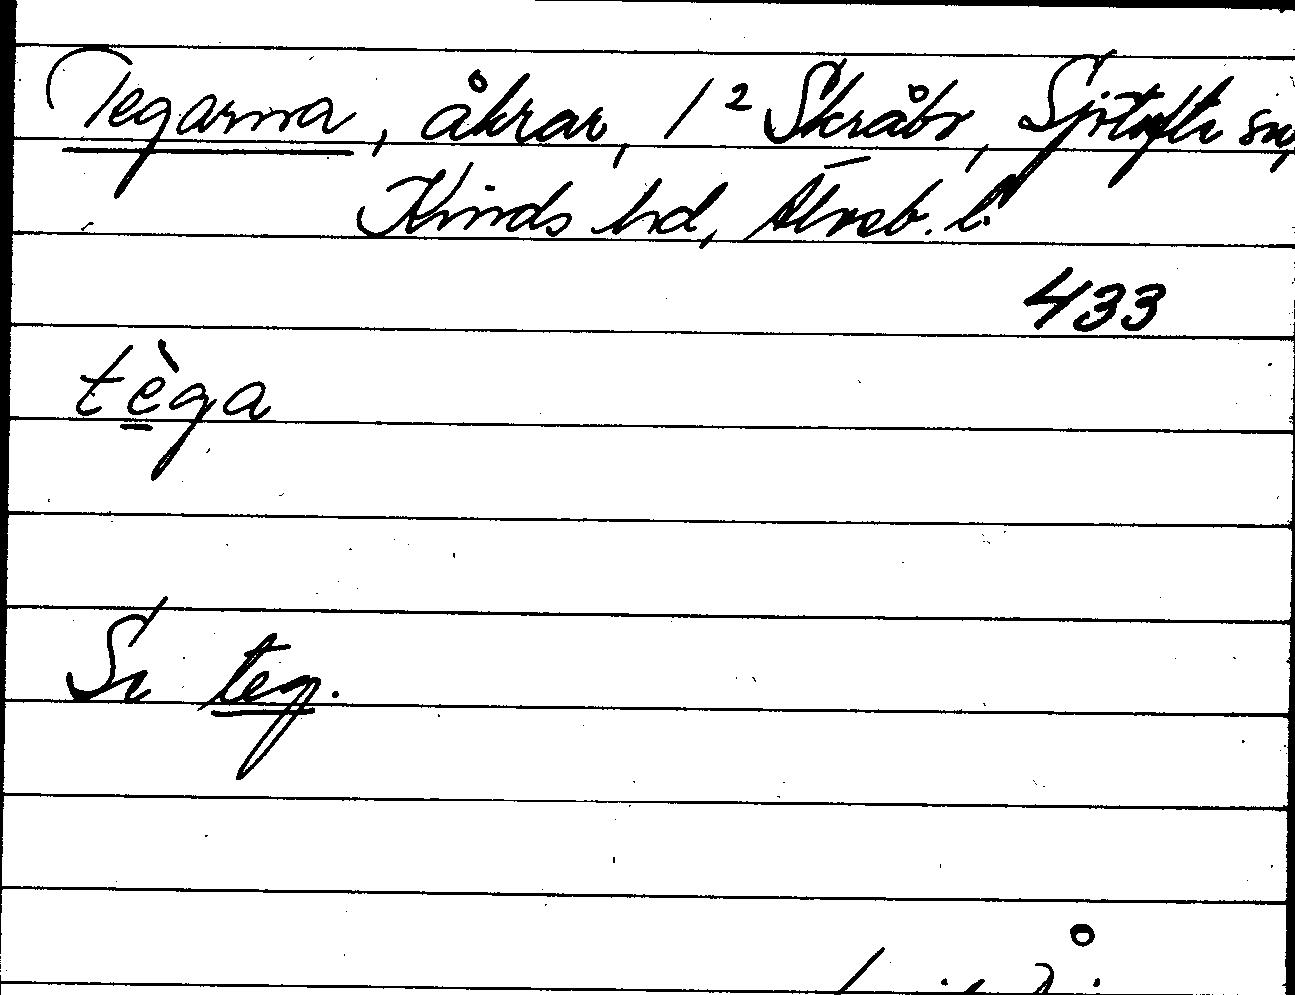 Tegarna, åkrar, 1² Skråbr, Sjötofta sn,
Kinds hd, Älvsb. l.
433
tèga
Se teg.